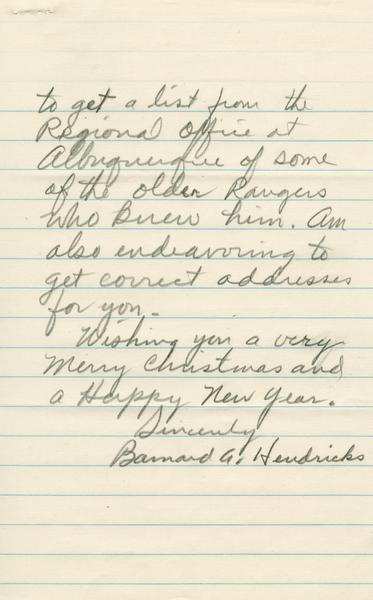 to get a list from the
Regional Office at
Albuquerque of some
of the older Rangers
who knew him. Am
also endeavoring to
get correct addresses
for you.
Wishing you a very
Merry Christmas and
a Happy New Year.
Sincerely
Barnard A. Hendricks